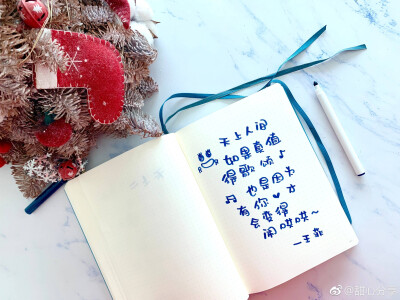 天上人间
如果真值
得歌颂♪
♫ 也是因为
有你♥才
会变得
闹哄哄～
—王菲